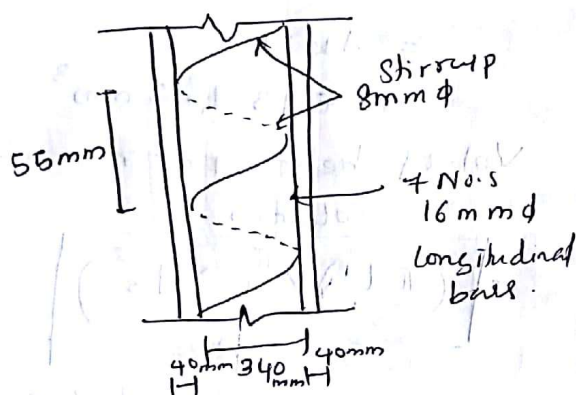 Stirrup
8mm ϕ
55mm
7 No.s
16 mm ϕ
Longitudinal
bars.
40mm 340 mm 40mm